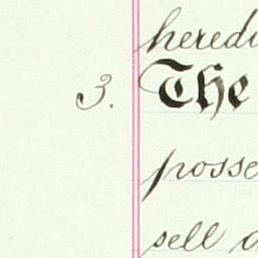 heredi
3. The
posse
sell a